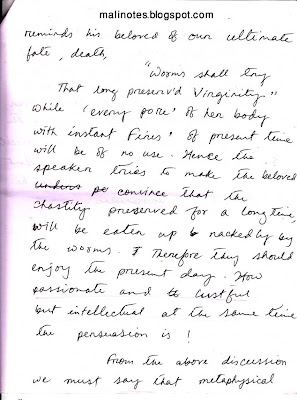 malinotes.blogspot.com
reminds his beloved of our ultimate
fate, death,
"Worms shall try
That long preserv'd Virginity"
While 'every pore' of her body
with instant Fires' of present time
will be of no use. Hence the
speaker tries to make the beloved
convince that the
chastity preserved for a long time
will be eaten up by
the worms. Therefore they should
enjoy the present day. How
passionate and lustful
but intellectual at the same time
the persuasion is!
From the above discussion
we must say that metaphysical